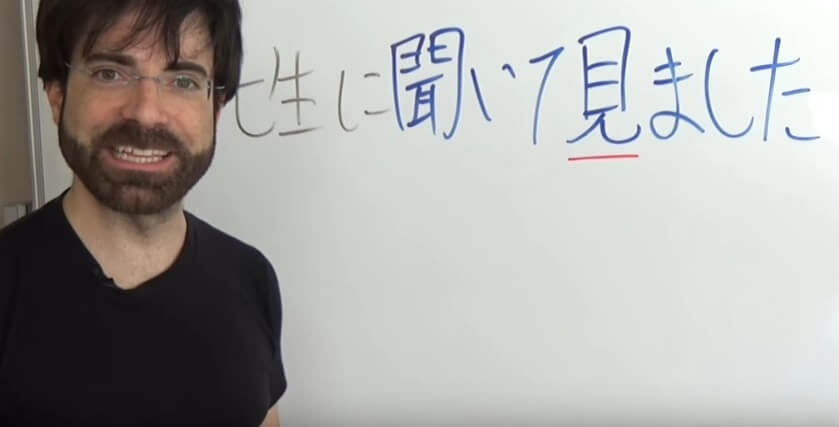 先生に聞いて見ました